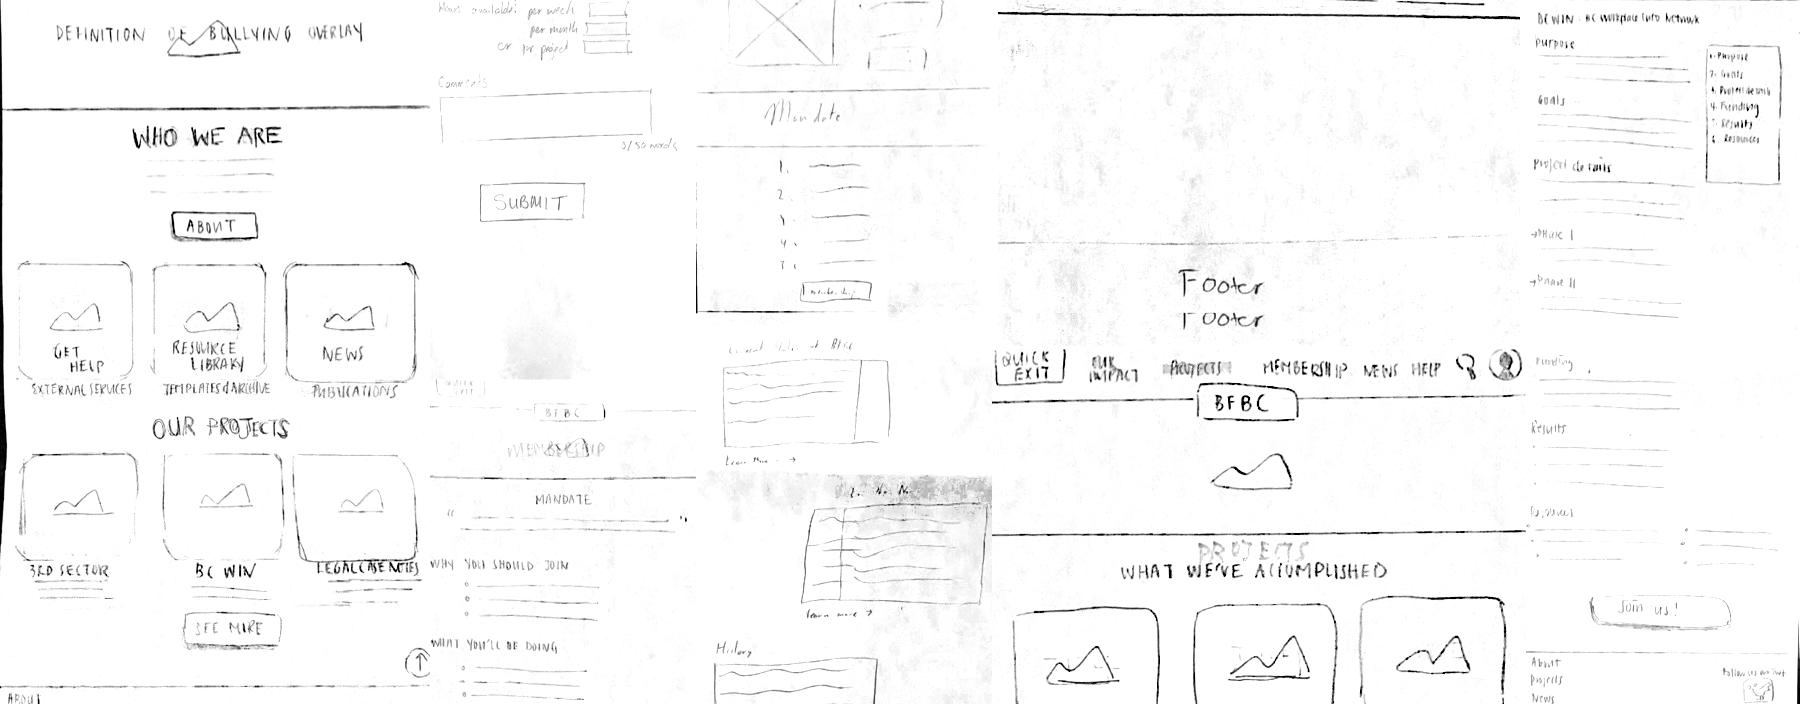 DEFINITION OF BULLYING OVERLAY
WHO WE ARE
ABOUT
GET
HELP
EXTERNAL SERVICES
RESOURCE
LIBRARY
TEMPLATES & ARCHIVE
NEWS
PUBLICATIONS
OUR PROJECTS
3RD SECTOR
BC WIN
LEGAL CASE NOTES
SEE MORE
ABOUT
Hours available: per week
per month
or per project
Comments
0/50 words
SUBMIT
QUICK
EXIT
BFBC
MEMBERSHIP
MANDATE
"
"
WHY YOU SHOULD JOIN
WHAT YOU'LL BE DOING
Mandate
1.
2.
3.
4.
5.
Learn More →
Learn more →
History
Footer
Footer
QUICK
EXIT
OUR
IMPACT
PROJECTS
MEMBERSHIP
NEWS
HELP
BFBC
PROJECTS
WHAT WE'VE ACCOMPLISHED
BC WIN - BC Workplace Info Network
Purpose
Goals
Project details
→ Phase I
→ Phase II
Funding
Results
Resources
1. Purpose
2. Goals
3. Project details
4. Funding
5. Results
6. Resources
Join us!
About
Projects
News
Follow us on